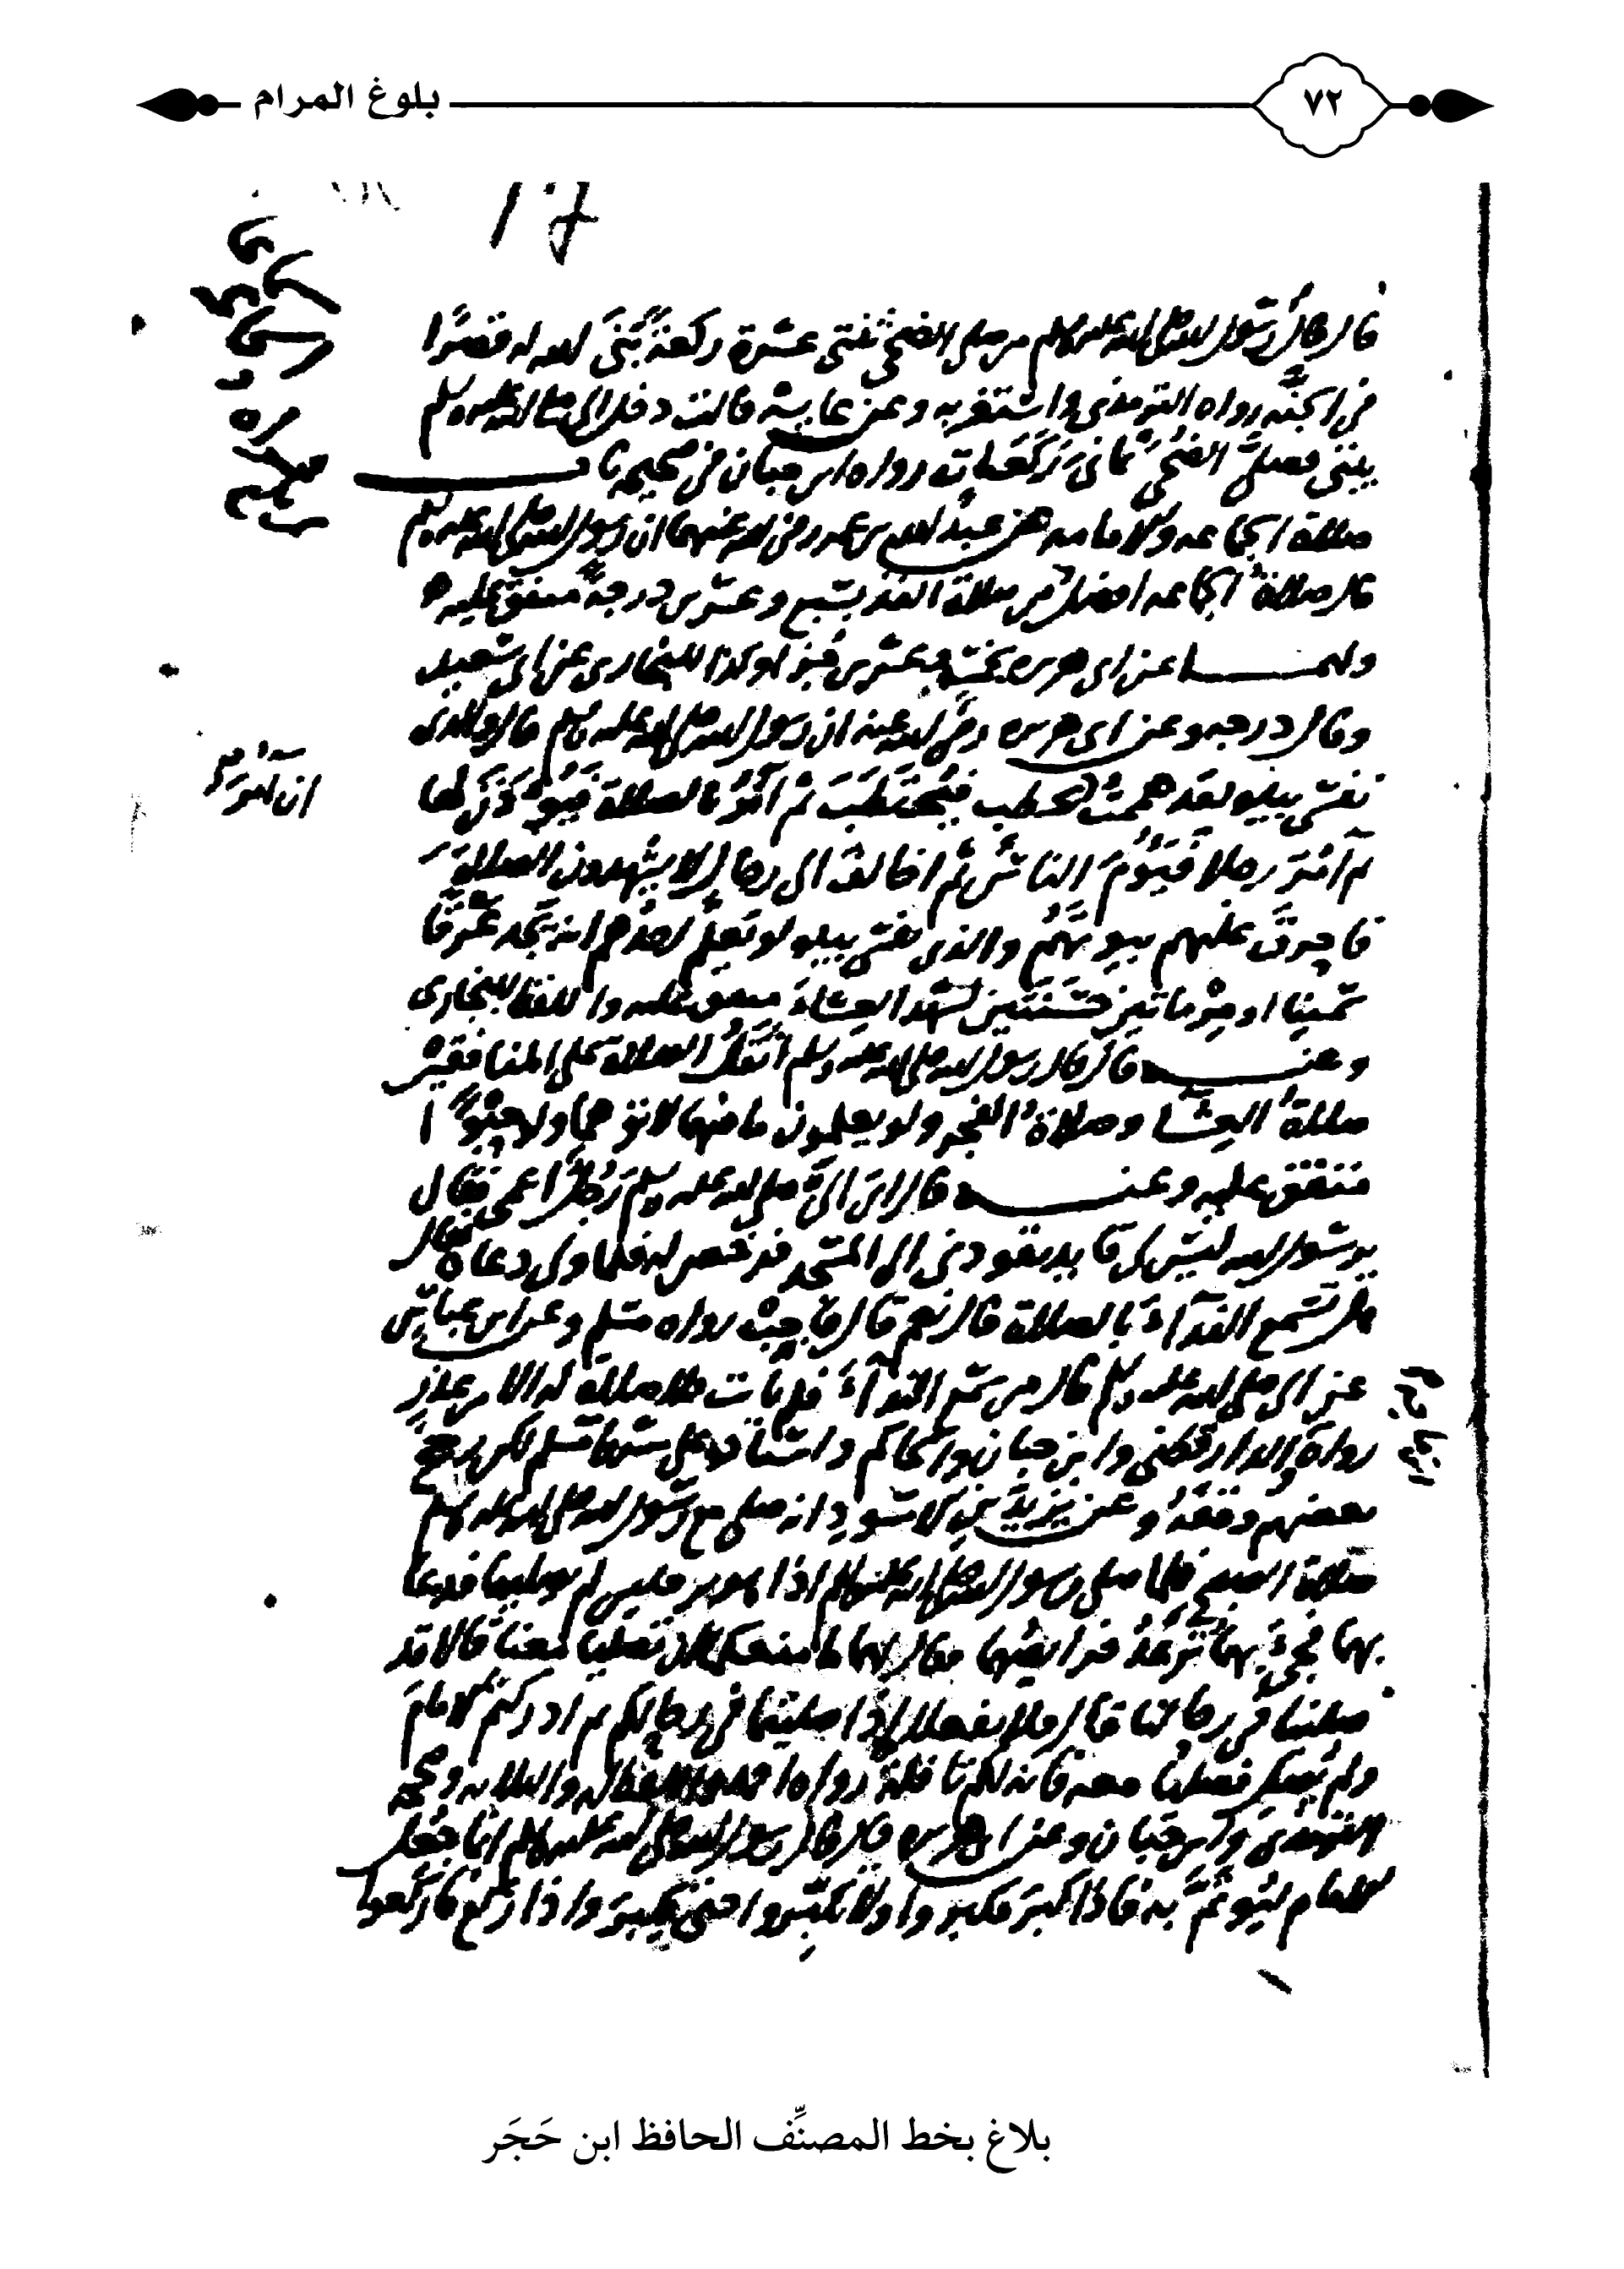 بلوغ المرام
٧٢
قال قال رسول الله صلى الله عليه وسلم من صلى الضحى ثنتي عشرة ركعة بنى الله له قصرا
في الجنة رواه الترمذي واستغربه وعن عايشة قالت دخل النبي صلى الله عليه وسلم
بيتي فصلى الضحى ثماني ركعات رواه ابن حبان في صحيحه باب
صلاة الجماعه والامامه عن عبد الله بن عمر رضي الله عنهما ان رسول الله صلى الله عليه وسلم
قال صلاة الجماعه افضل من صلاة الفذ بسبع وعشرين درجة متفق عليه
ولهما عن ابي هريره بخمس وعشرين جزا وكذا للبخاري عن ابي سعيد
وقال درجه وعن ابي هريره رضي الله عنه ان رسول الله صلى الله عليه وسلم قال والذي
نفسي بيده لقد هممت بحطب فيحتطب ثم آمر بالصلاة فيؤذن لها
ان آمر
ثم آمر رجلا فيؤم الناس ثم اخالف الى رجال لا يشهدون الصلاة
فاحرق عليهم بيوتهم والذي نفسي بيده لو يعلم احدهم انه يجد عرقا
سمينا او مرماتين حسنتين لشهد العشاء متفق عليه واللفظ للبخاري
وعنه قال قال رسول الله صلى الله عليه وسلم اثقل الصلاة على المنافقين
صلاة العشا وصلاة الفجر ولو يعلمون ما فيهما لاتوهما ولو حبوا
متفق عليه وعنه قال اتى النبي صلى الله عليه وسلم رجل اعمى فقال
يرسول الله ليس لي قايد يقودني الى المسجد فرخص له فلما ولى دعاه فقال
هل تسمع النداء بالصلاة قال نعم قال فاجب رواه مسلم وعن ابن عباس
عن النبي صلى الله عليه وسلم قال من سمع النداء فلم يات فلا صلاة له الا من عذر
ابن ماجه
رواه والدارقطني وابن حبان والحاكم واسناده على شرط مسلم لكن رجح
بعضهم وقفه وعن يزيد بن الاسود انه صلى مع رسول الله صلى الله عليه وسلم
صلاة الصبح فلما صلى رسول الله صلى الله عليه وسلم اذا هو برجلين لم يصليا فدعا
بهما فجيء بهما ترعد فرايصهما فقال لهما ما منعكما ان تصليا معنا قالا قد
صلينا في رحالنا قال فلا تفعلا اذا صليتما في رحالكم ثم ادركتم الامام
ولم يصل فصليا معه فانه لكم نافلة رواه احمد واللفظ له والثلاثه وصححه
الترمذي وابن حبان وعن ابي هريره قال قال رسول الله صلى الله عليه وسلم انما جعل
الامام ليؤتم به فاذا كبر فكبروا ولا تكبروا حتى يكبر واذا ركع فاركعوا
بلاغ بخط المصنِّف الحافظ ابن حَجَر